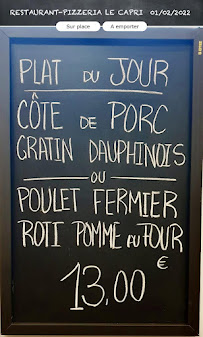 RESTAURANT-PIZZERIA LE CAPRI 01/02/2022
Sur place
A emporter
PLAT DU JOUR
CÔTE DE PORC
GRATIN DAUPHINOIS
OU
POULET FERMIER
ROTI POMME AU FOUR
13,00 €